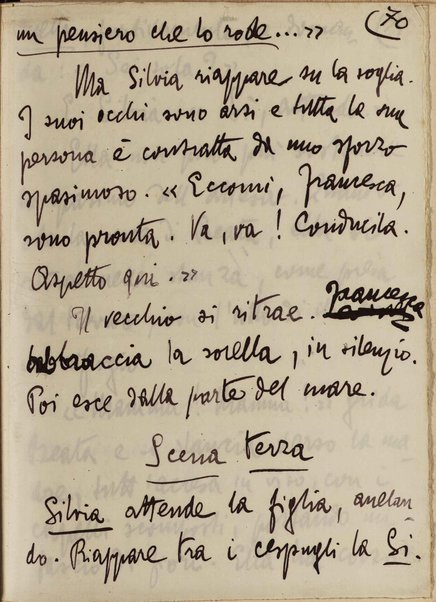 70
un pensiero che lo rode...»
Ma Silvia riappare su la soglia.
I suoi occhi sono arsi e tutta la sua
persona è contratta da uno sforzo
spasimoso. « Eccomi, Francesca,
sono pronta. Va, va! Conducila.
Aspetto qui.»
Il vecchio si ritrae. Francesca
abbraccia la sorella, in silenzio.
Poi esce dalla parte del mare.
Scena terza
Silvia attende la figlia, anelan
do. Riappare tra i cespugli la Si.